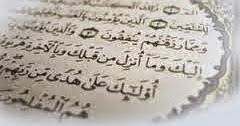 لِّلْمُتَّقِينَ ۝ الَّذِينَ يُؤْمِنُونَ
وَمِمَّا رَزَقْنَٰهُمْ يُنفِقُونَ ۝ وَالَّذِينَ يُؤْمِنُونَ
إِلَيْكَ وَمَآ أُنزِلَ مِن قَبْلِكَ وَبِالْآخِرَةِ هُمْ
أُو۟لَٰٓئِكَ عَلَىٰ هُدًى مِّن رَّبِّهِمْ
هُمُ الْمُفْلِحُونَ